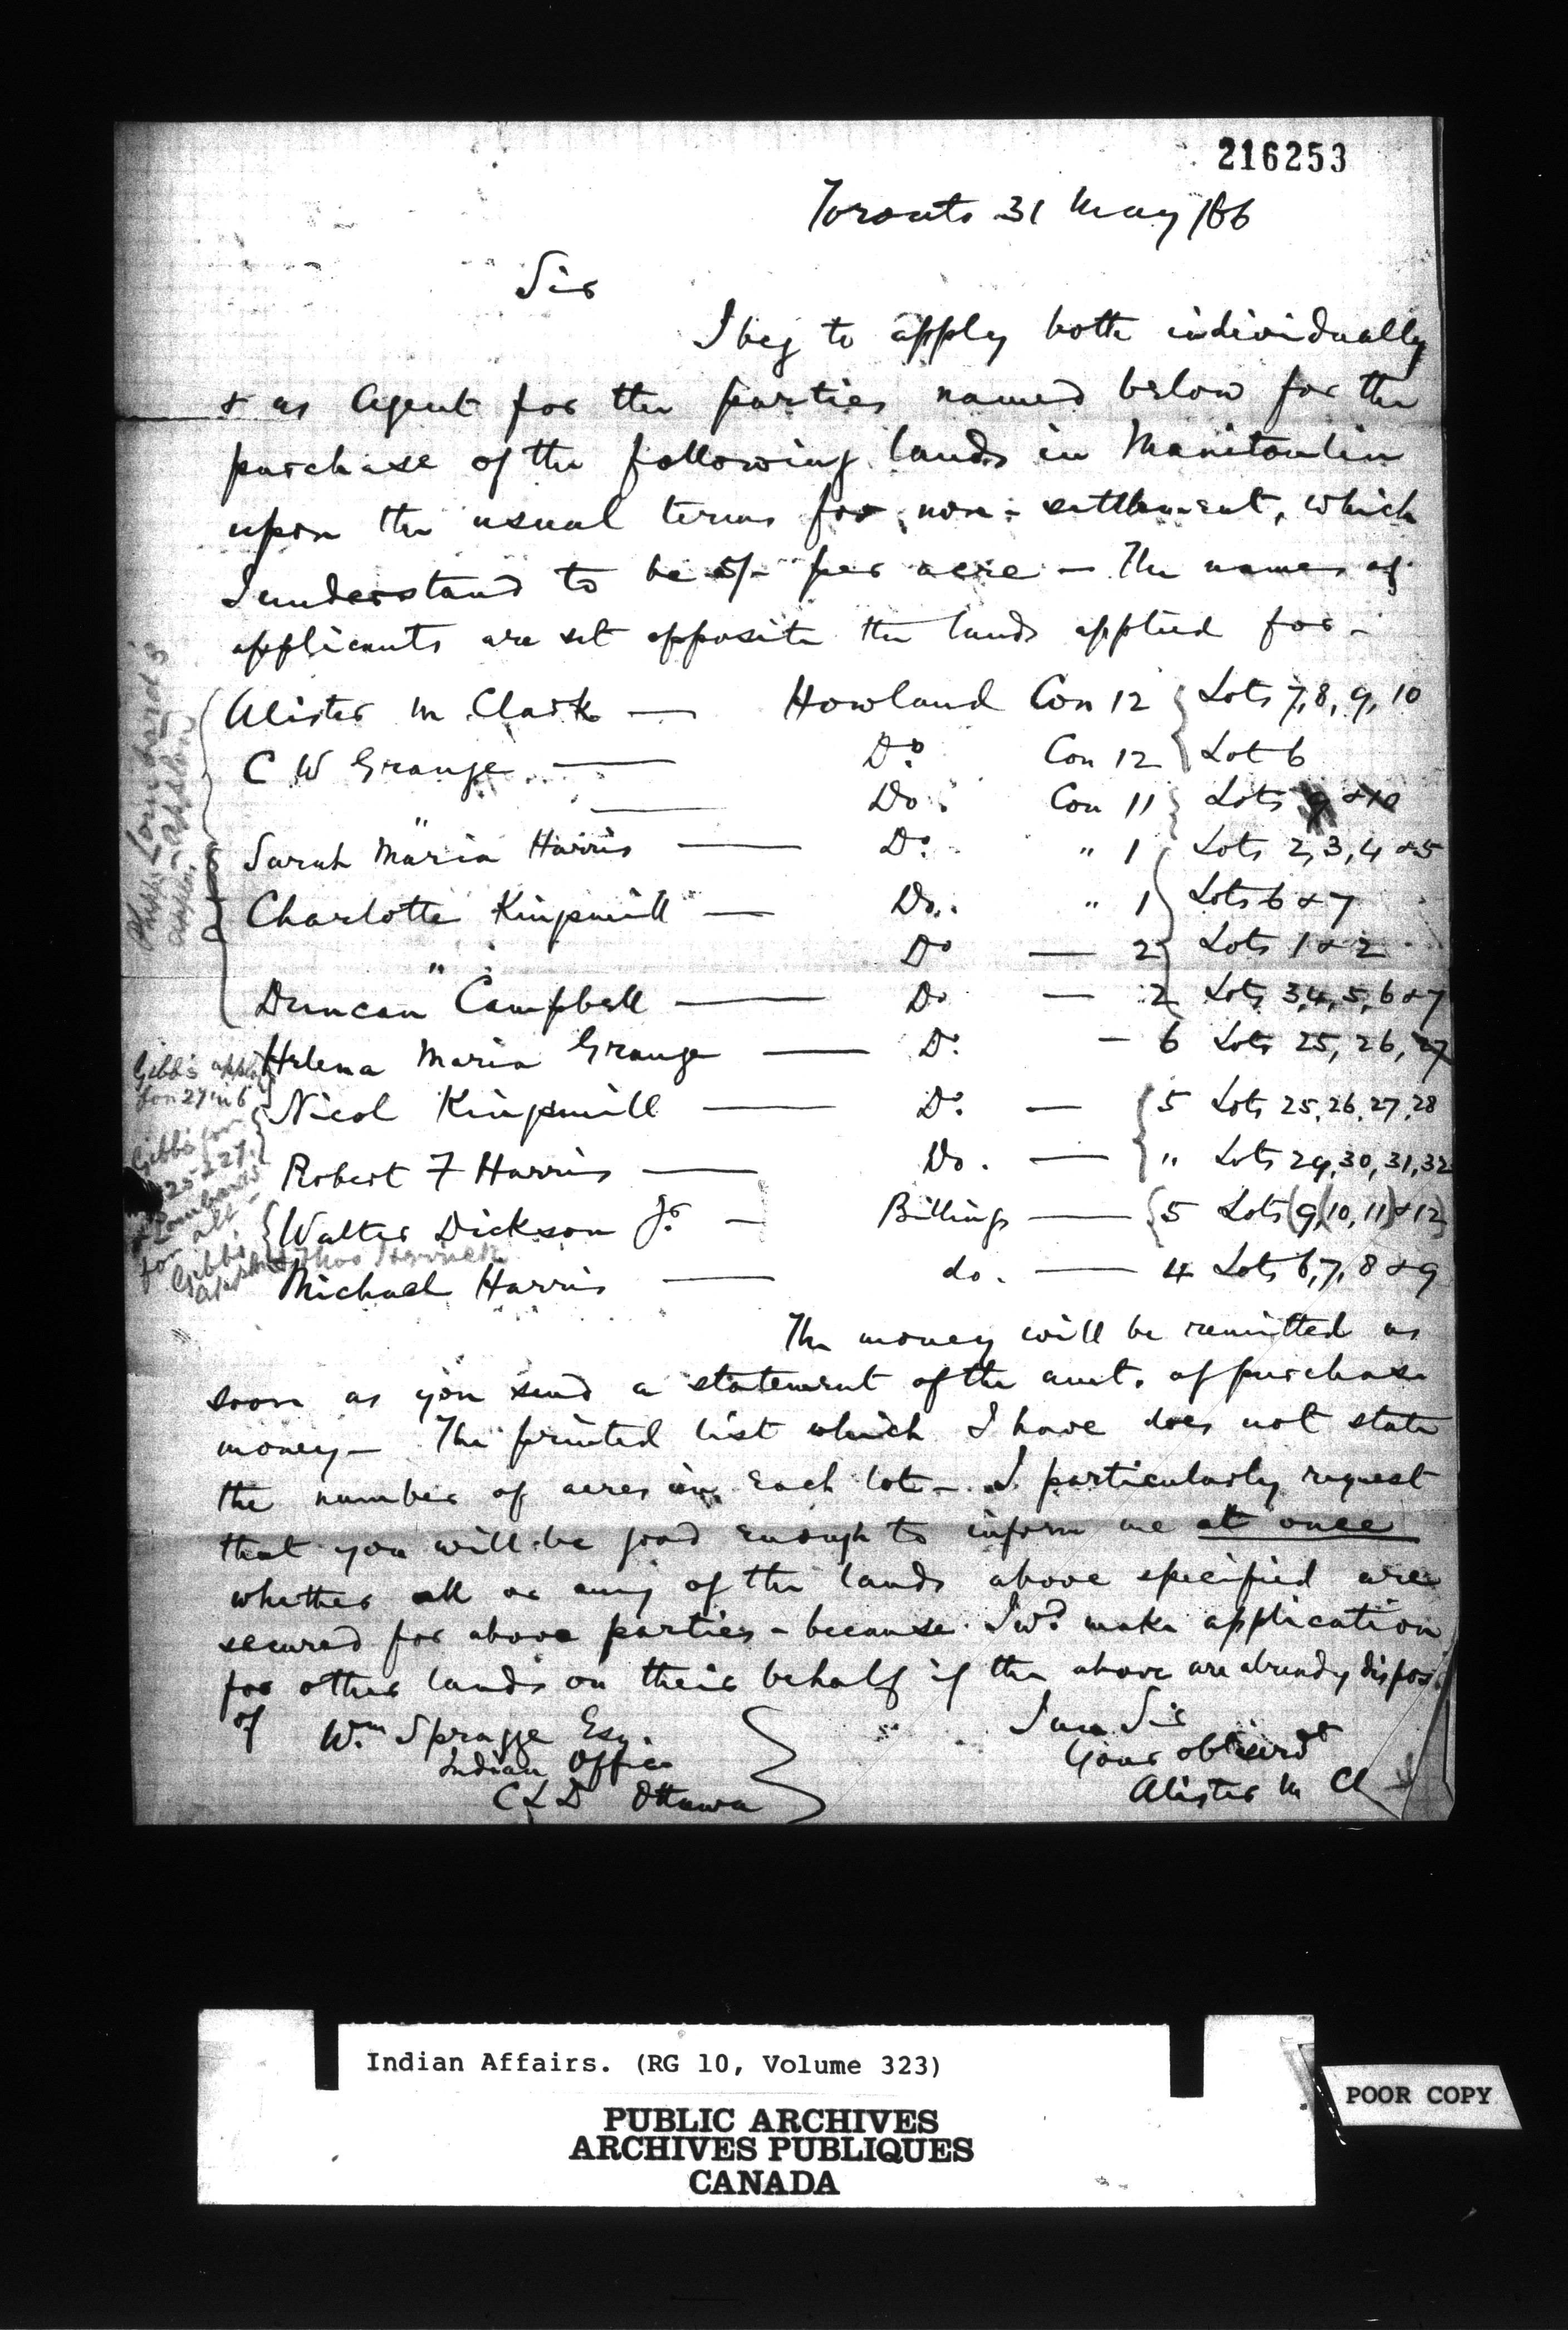 216253
Toronto 31 May /66
Sir
I beg to apply both individually
& as Agent for the parties named below for the
purchase of the following lands in Manitoulin
upon the usual terms for non-settlement, which
I understand to be 5/- per acre — The names of
applicants are set opposite the lands applied for —
Alister M Clark — Howland Con 12 Lots 7, 8, 9, 10
C W Grange — Do. Con 12 Lot 6
" — Do. Con 11 Lots 9 & 10
Sarah Maria Harris — Do. " 1 Lots 2, 3, 4 & 5
Charlotte Kingsmill — Do. " 1 Lots 6 & 7
" Do — 2 Lots 1 & 2
Duncan Campbell — Do — 2 Lots 3, 4, 5, 6 & 7
Helena Maria Grange — Do. — 6 Lots 25, 26, 27
Nicol Kingsmill — Do. — 5 Lots 25, 26, 27, 28
Robert F Harris — Do. — " Lots 29, 30, 31, 32
Walter Dickson Jr. — Billings — 5 Lots (9, (10, 11) & 12)
Michael Harris — do. — 4 Lots 6, 7, 8 & 9
Gibbs
for 27 in 6
Gibbs for
25 & 27
for alt
Gibbs
The money will be remitted as
soon as you send a statement of the amt. of purchase
money — The printed list which I have does not state
the number of acres in each lot — I particularly request
that you will be good enough to inform me at once
whether all or any of the lands above specified are
secured for above parties — because I wd. make application
for other lands on their behalf if the above are already dispos
of
Wm Spragge Esq.
Indian Office
C L D Ottawa
I am Sir
Your obt servt
Alister M Cl
Indian Affairs. (RG 10, Volume 323)
PUBLIC ARCHIVES
ARCHIVES PUBLIQUES
CANADA
POOR COPY